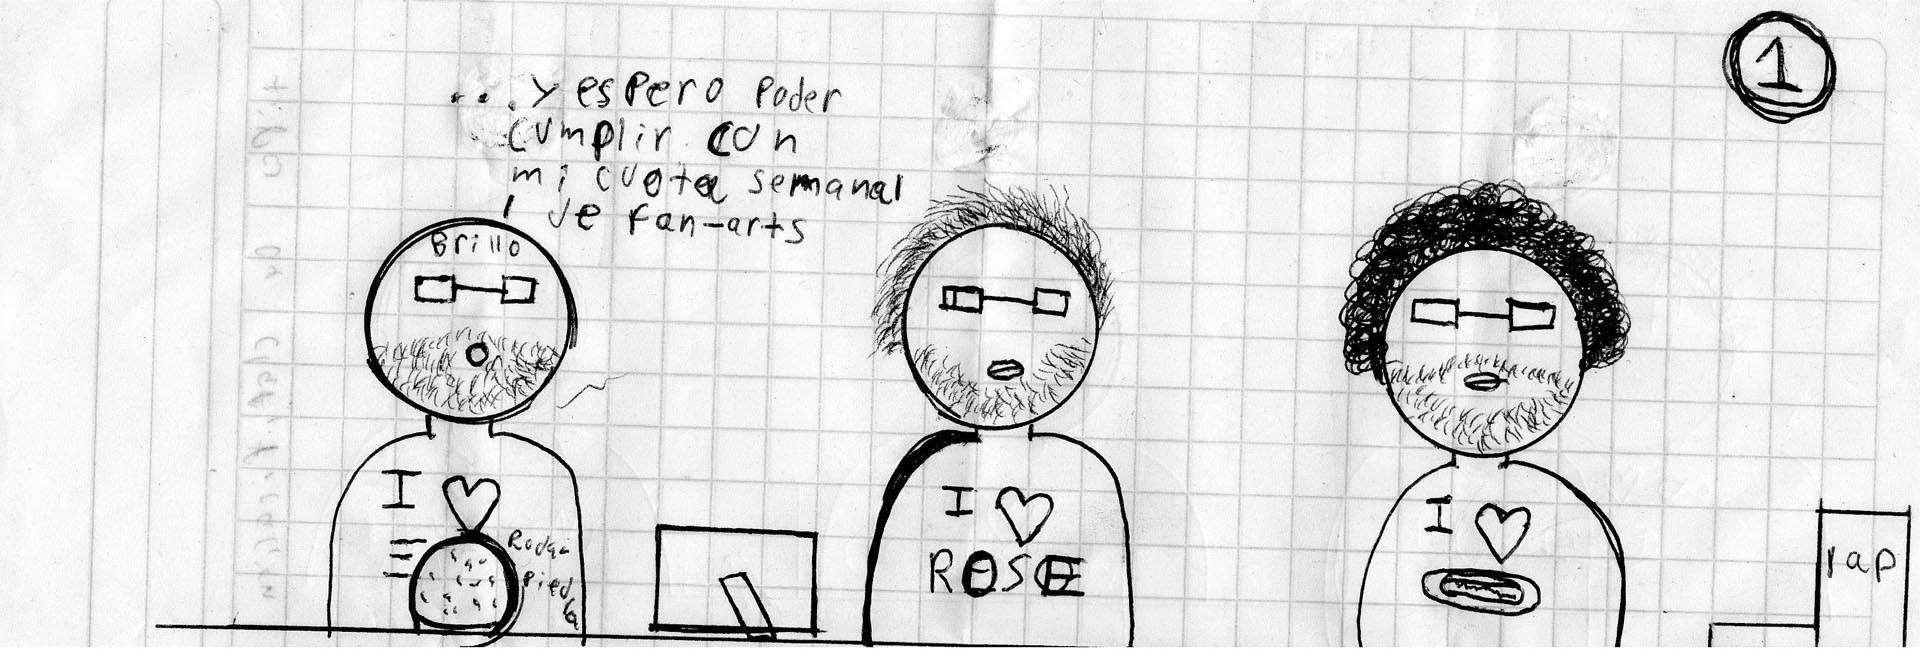 1
... y espero poder
cumplir con
mi cuota semanal
de fan-arts
Brillo
I
Roda
Pied
I
ROSE
I
rap